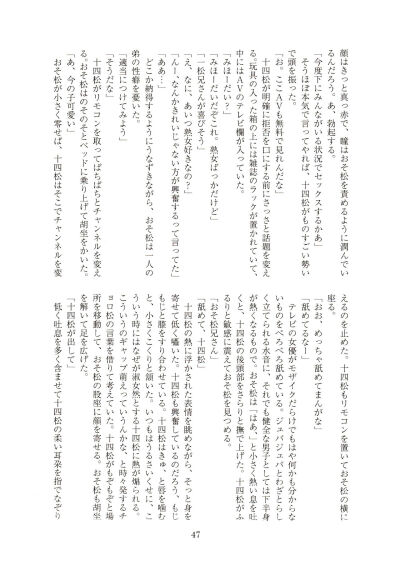 顔はきっと真っ赤で、瞳はおそ松を責めるように潤んでい
るんだろう。あ、勃起する。
「今度下にみんながいる状況でセックスするかあ」
そうほぼ本気で言ってやれば、十四松がものすごい勢い
で頭を振った。
「お。ここAVも無料で見れんだな」
十四松が明確に拒否を口にする前にさっさと話題を変え
る。玩具の入った箱の上には雑誌のラックが置かれていて、
中にはAVのテレビ欄が入っていた。
「みほーだい？」
「みほーだいだぞこれ。熟女ばっかだけど」
「一松兄さんが喜びそう」
「え、なに、あいつ熟女好きなの？」
「んー、なんかきれいじゃない方が興奮するって言ってた」
「ああ…」
どこか納得するようにうなずきながら、おそ松は一人の
弟の性癖を憂いた。
「適当につけてみよう」
「そうだな」
十四松がリモコンを取ってぱちぱちとチャンネルを変え
る。おそ松はのそのそとベッドに乗り上げて胡坐をかいた。
「あ、今の子可愛い」
おそ松が小さく零せば、十四松はそこでチャンネルを変
えるのを止めた。十四松もリモコンを置いておそ松の横に
座る。
「おお、めっちゃ舐めてまんがな」
「舐めてるなー」
テレビの女優がモザイクだらけでもはや何かも分からな
いものをべろべろ舐めている。ジュバジュバとわざとらし
く立てられる水音に、それでも健全な男子としては下半身
が熱くなるもので。おそ松は「はあ」と小さく熱い息を吐
くと、十四松の後頭部をさらりと撫で上げた。十四松がふ
るりと敏感に震えておそ松を見つめる。
「おそ松兄さん」
「舐めて、十四松」
十四松の熱に浮かされた表情を眺めながら、そっと身を
寄せて低く囁いた。十四松も興奮しているのだろう、もじ
もじと膝をすり合わせている。十四松はきゅ、と唇を噛む
と、小さくこくりと頷いた。いつもはうるさいくせに、こ
ういう時にはなぜか淑女然とする十四松に熱が煽られる。
こういうのギャップ萌えっていうんかな、と時々発するチ
ョロ松の言葉を借りて考えていた。十四松がもぞもぞと場
所を移動して、おそ松の股座に顔を寄せる。おそ松も胡坐
を解いて足を広げた。
「十四松が出して」
低く吐息を多く含ませて十四松の柔い耳朶を指でなぞり
47